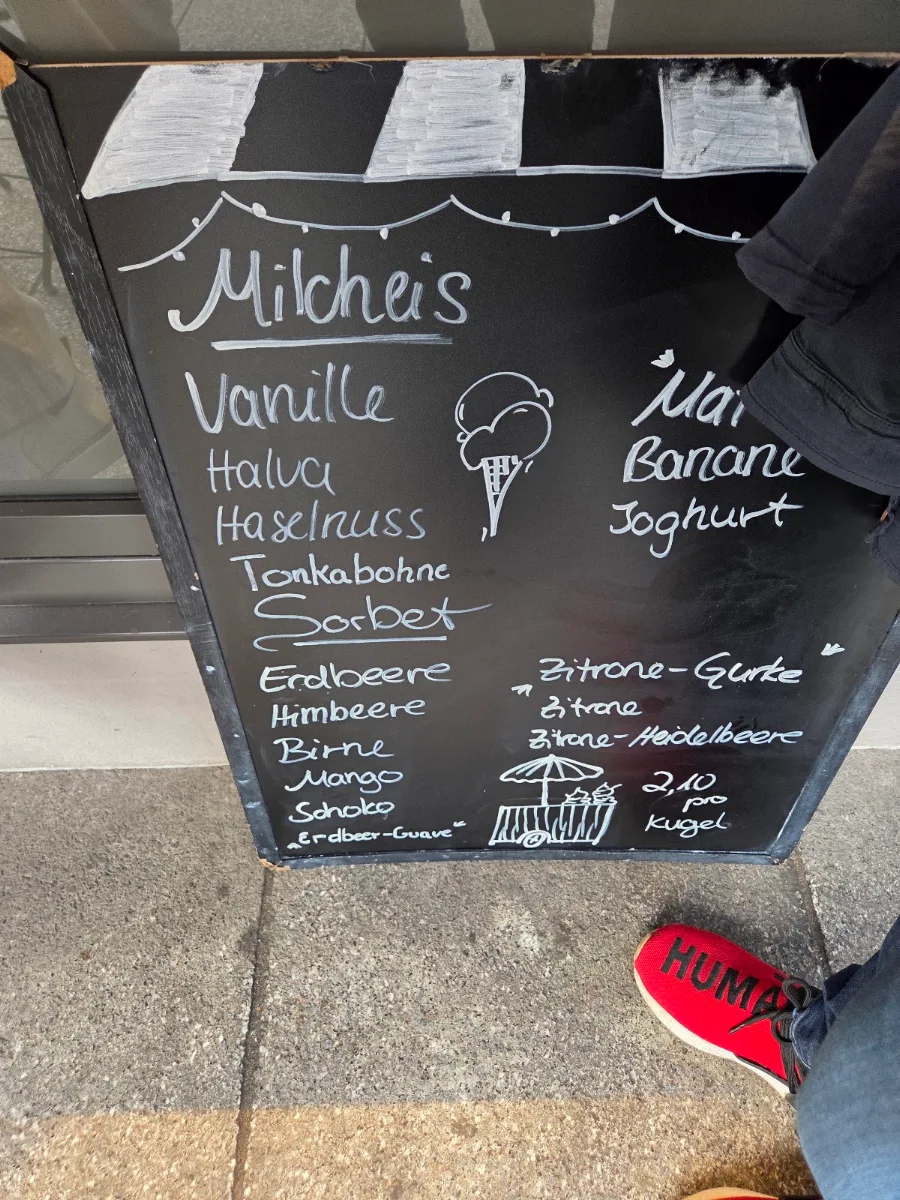 Milcheis
Vanille
Halva
Haselnuss
Tonkabohne
Banane
Joghurt
Sorbet
Erdbeere
Himbeere
Birne
Mango
Schoko
„Erdbeer-Guave“
Zitrone-Gurke“
„Zitrone
Zitrone-Heidelbeere
2,10
pro
Kugel
HUMA